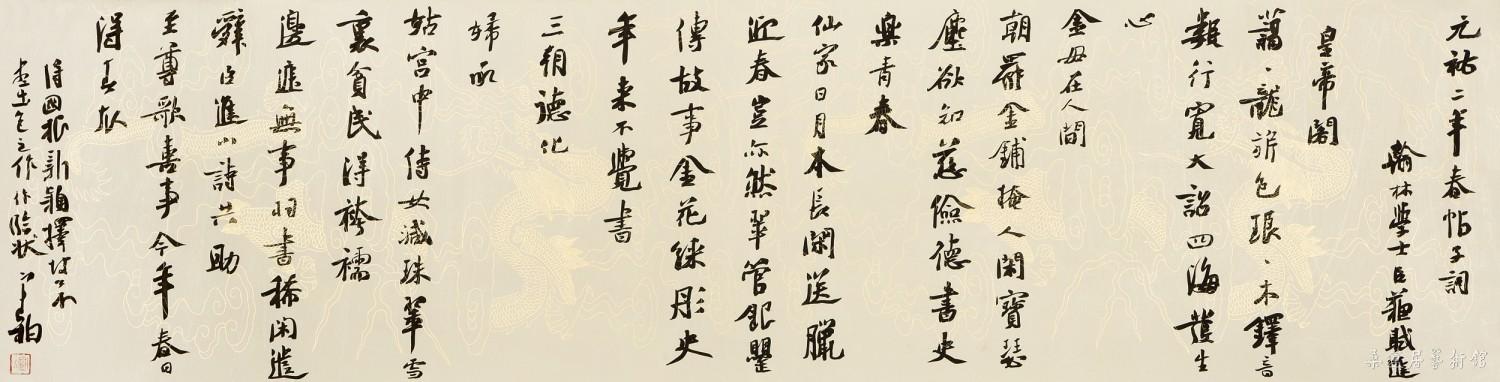 元祐二年春帖子詞
翰林學士臣蘇軾進
皇帝閣
藹、龍旂色琅、木鐸音
數行寬大詔四海發生
心
金母在人間
朝罷金鋪掩人閑寶瑟
塵欲知慈儉德書史
樂青春
仙家日月本長閑送臘
迎春豈亦然翠管銀罌
傳故事金花綵彤史
年來不覺書
三朝德化
婦承
姑宮中侍女減珠翠雪
裏貧民得袴襦
邊進無事羽書稀閑遣
辭臣進小詩共助
至尊歌喜事今年春日
得春